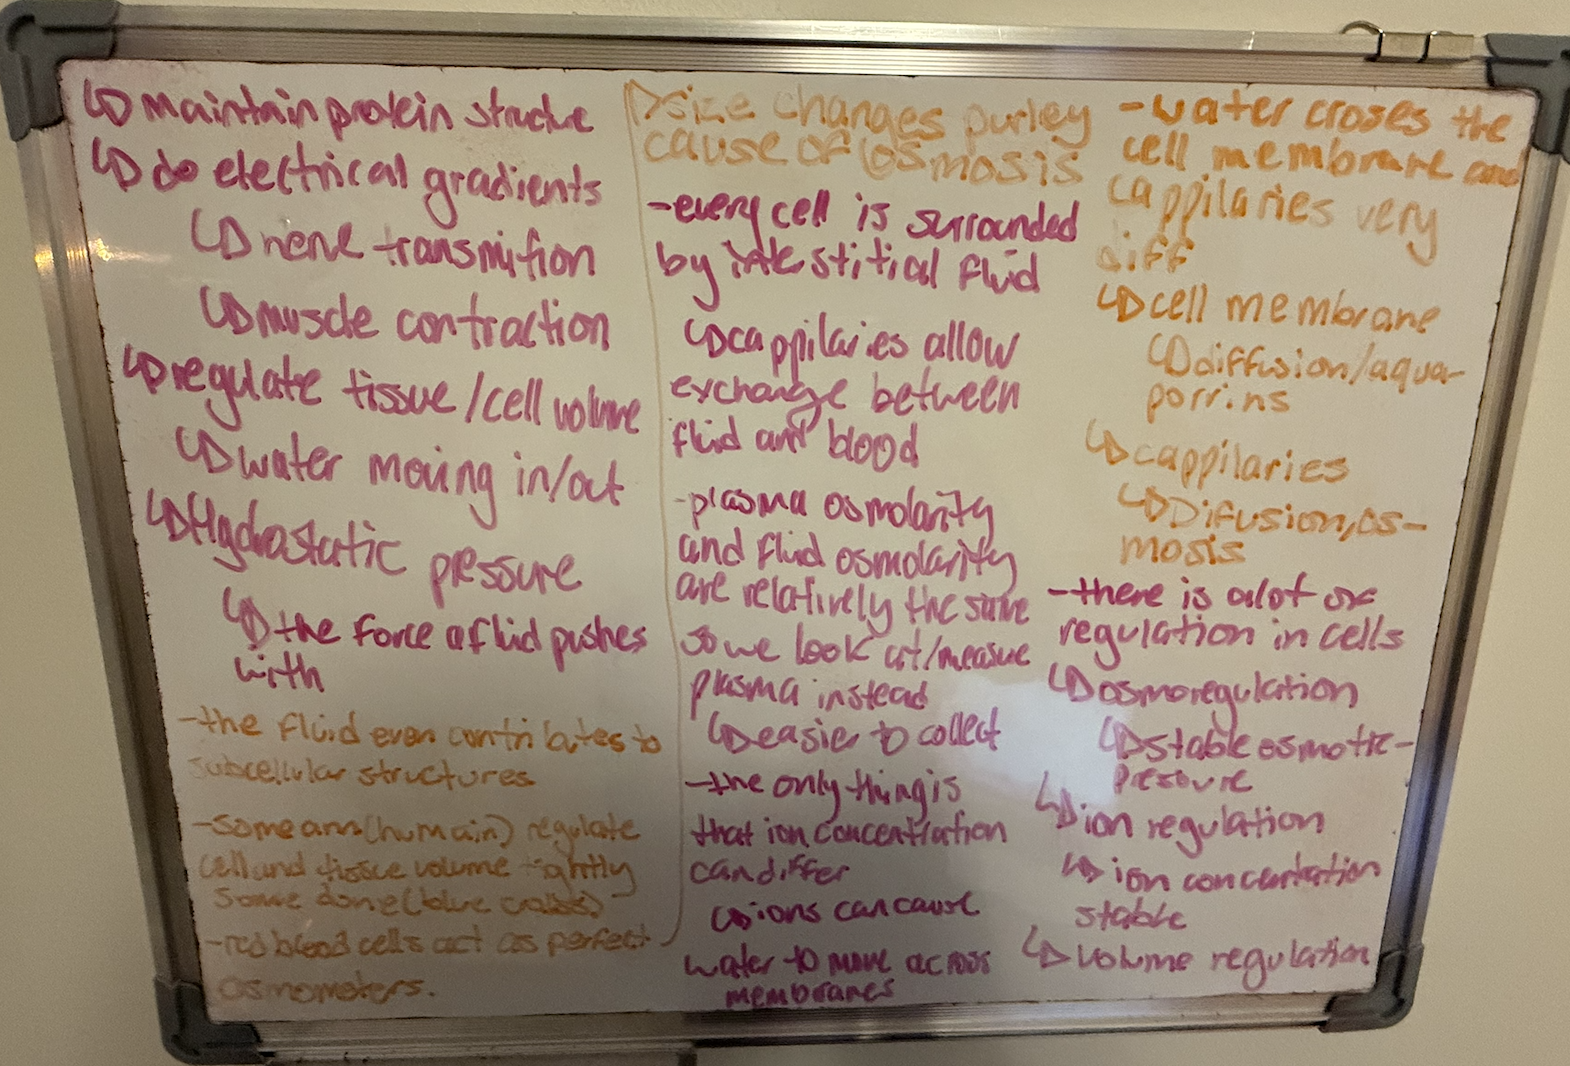 ↳ maintain protein structure
↳ do electrical gradients
↳ nerve transmition
↳ muscle contraction
↳ regulate tissue/cell volume
↳ water moving in/out
↳ Hydrostatic pressure
↳ the force a fluid pushes
with
-the fluid even contributes to
subcellular structures
-some ann(human) regulate
cell and tissue volume tightly
some done(blue crabs)
-red blood cells act as perfect
osmometers.
↳ size changes purley
cause of osmosis
-every cell is surrounded
by interstitial fluid
↳ cappilaries allow
exchange between
fluid and blood
-plasma osmolarity
and fluid osmolarity
are relatively the same
so we look at/measure
plasma instead
↳ easier to collect
-the only thing is
that ion concentration
can differ
↳ ions can cause
water to move across
membranes
-water croses the
cell membrane and
cappilaries very
diff
↳ cell membrane
↳ diffusion/aqua-
porrins
↳ cappilaries
↳ Difusion, os-
mosis
-there is alot of
regulation in cells
↳ osmoregulation
↳ stable osmotic-
pressure
↳ ion regulation
↳ ion concentration
stable
↳ volume regulation